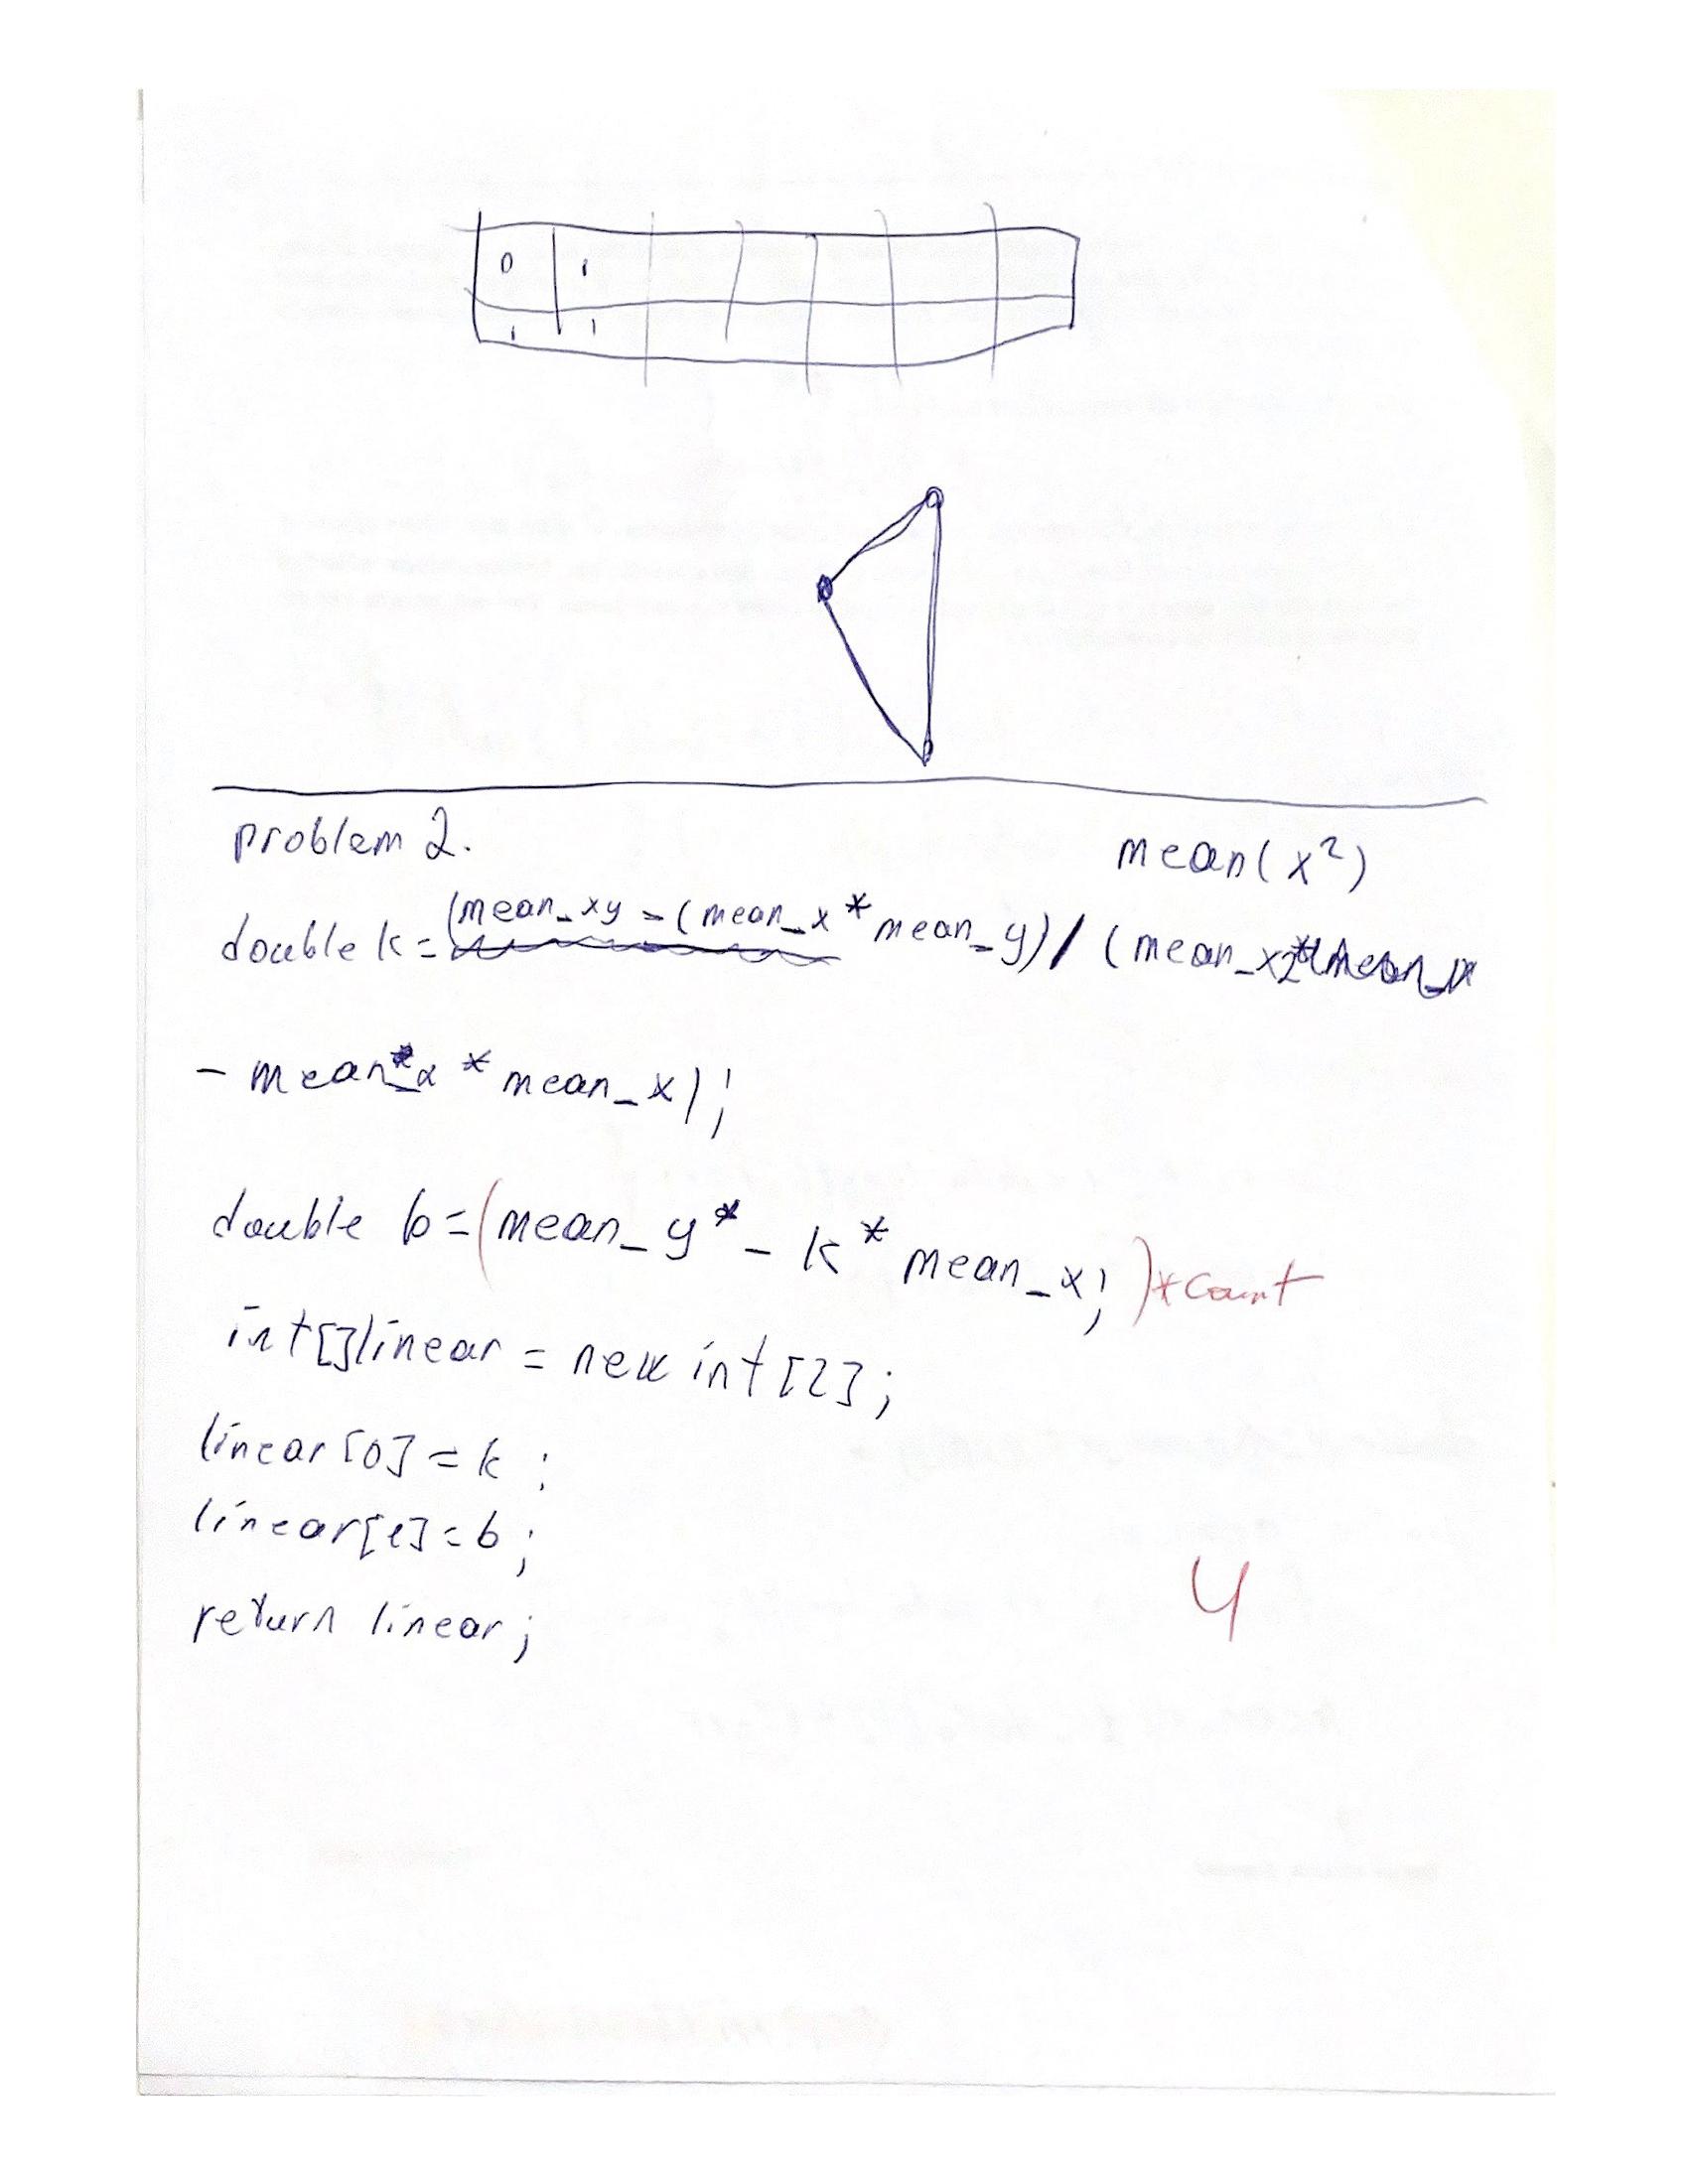 0 1
1 1
problem 2.
mean(x²)
double k = (mean_xy - (mean_x * mean_y) / (mean_x2
- mean_x * mean_x);
double b = (mean_y * - k * mean_x; ) * count
int[] linear = new int [2];
linear [0] = k ;
linear[1] = b ;
return linear ;
4